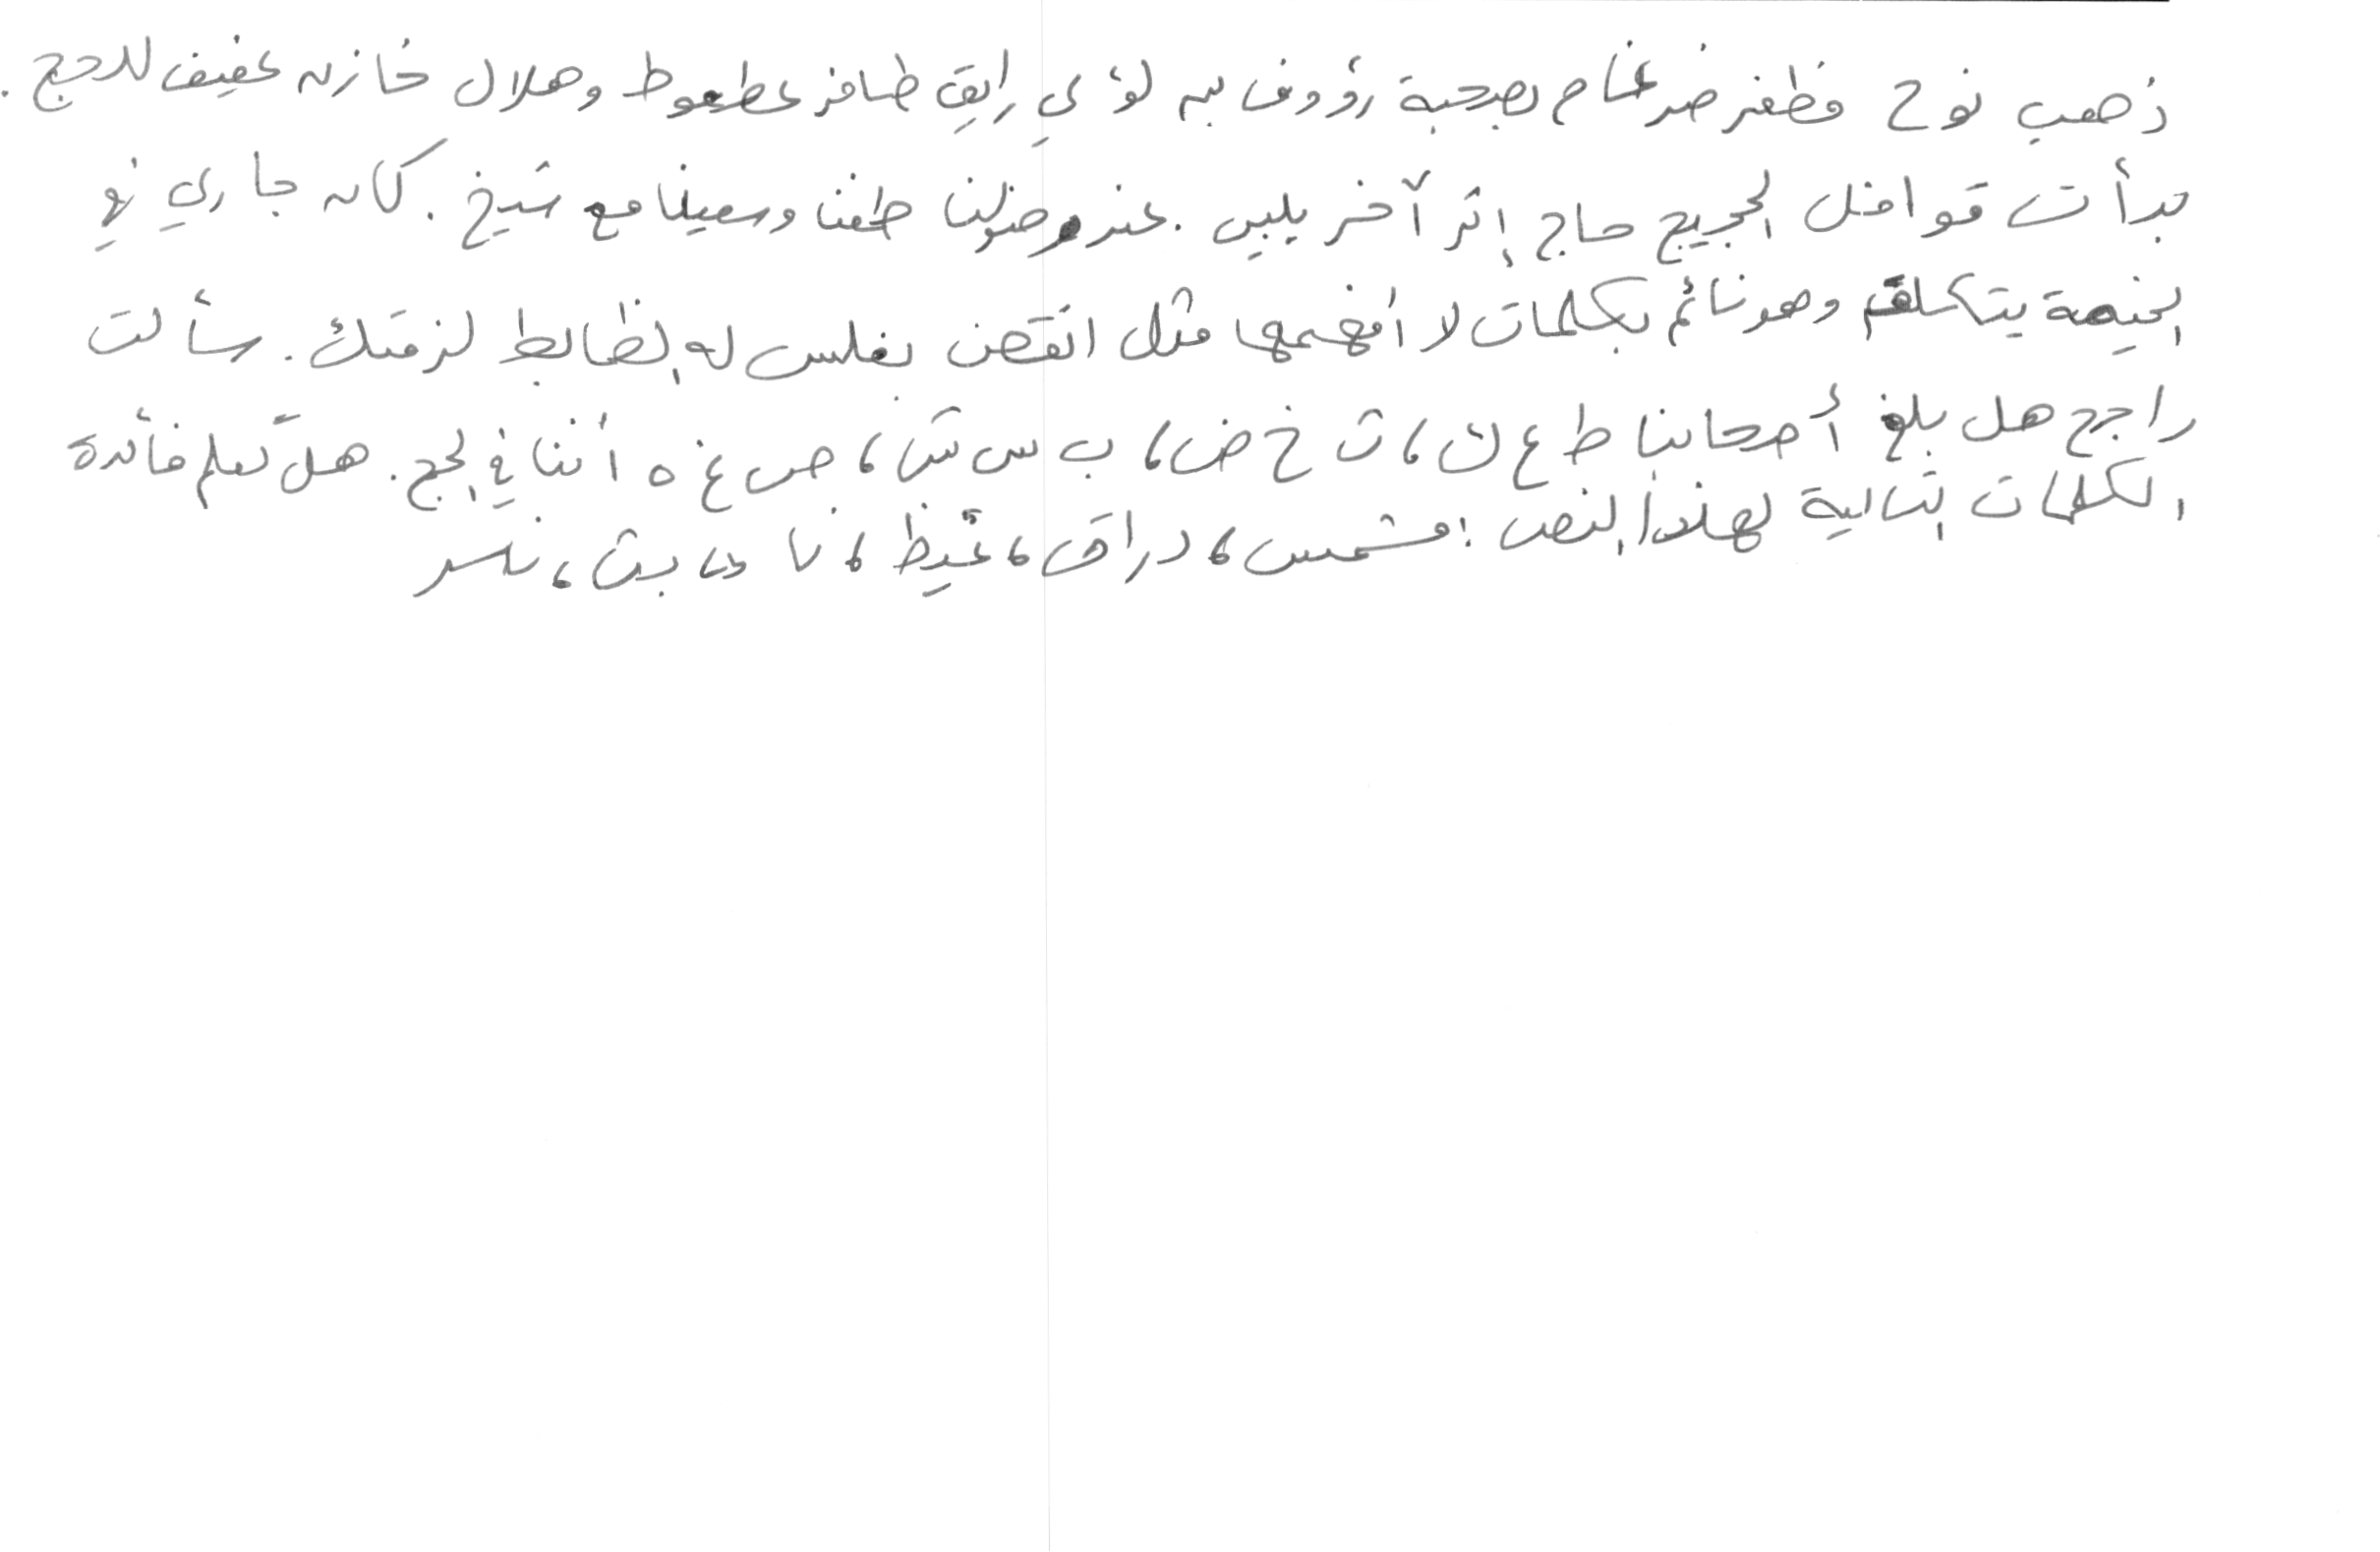 ذهب نوح مظفر ضرغام بصحبة رؤوف بن لؤي رايق ظافر عطعوط وهلال خازن عفيف للحج .
بدأت قوافل الحجيج حاج إثر آخر يلبي . عند وصولنا طفنا وسعينا مع شيخ . كان جاري في
الخيمة يتكلم وهو نائم بكلمات لا أفهمها مثل انقض بغلس له الضابط لزمتك . سألت
راجح هل بلغ أصحابنا ط ع ك ، ث خ ض ، ب س ش ، ص غ ه أننا في الحج . هل تعلم فائدة
الكلمات التالية لهذا النص : مشمس ، دراق ، غيظ ،